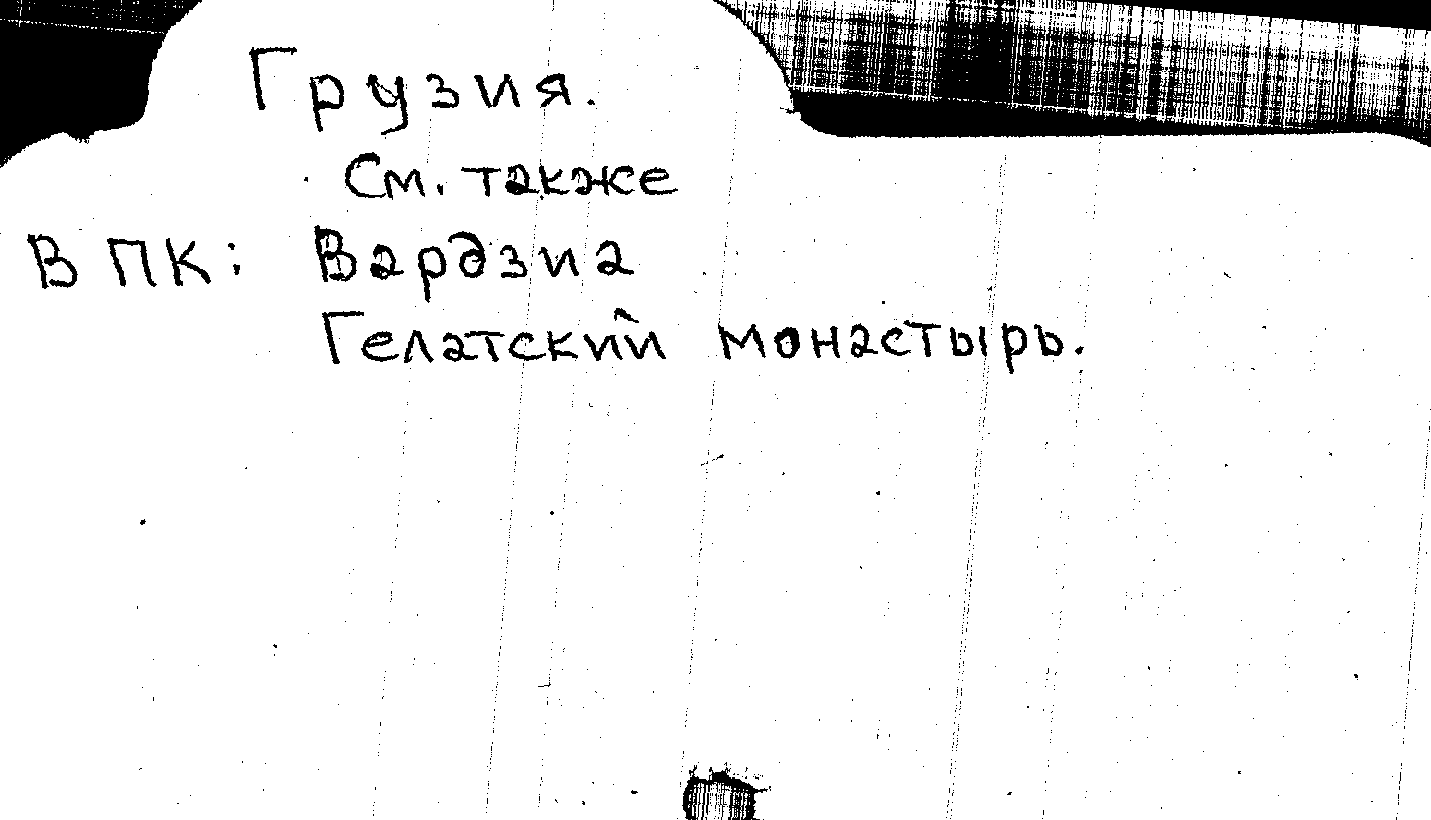 Грузия.
См. также
В ПК: Вардзиа
Гелатский монастырь.